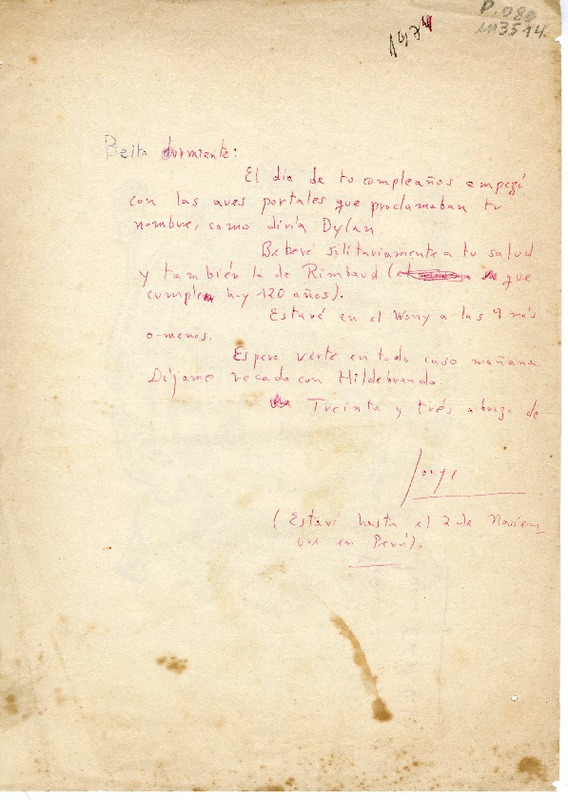 P. 080
M3514.
1974
Beito durmiente:
El día de tu cumpleaños empezó
con las aves portales que proclamaban tu
nombre, como diría Dylan.
Beberé solitariamente a tu salud
y también la de Rimbaud ( que
cumple hoy 120 años).
Estaré en el Wony a las 9 más
o menos.
Espero verte en todo caso mañana.
Déjame recado con Hildebrando.
Treinta y trés abrazo de
Jorge
(Estaré hasta el 2 de Noviem
bre en Perú).